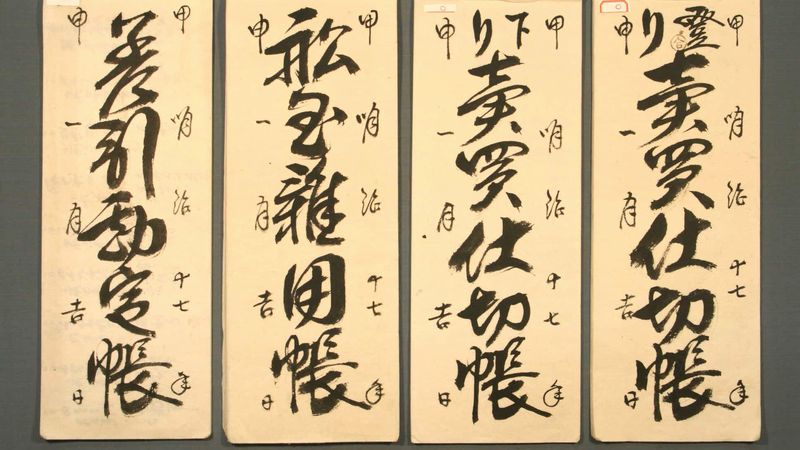 甲 明治十七年
登り賣買仕切帳
申 一月吉日
甲 明治十七年
下り賣買仕切帳
申 一月吉日
甲 明治十七年
舩 雜用帳
申 一月吉日
甲 明治十七年
差引勘定帳
申 一月吉日